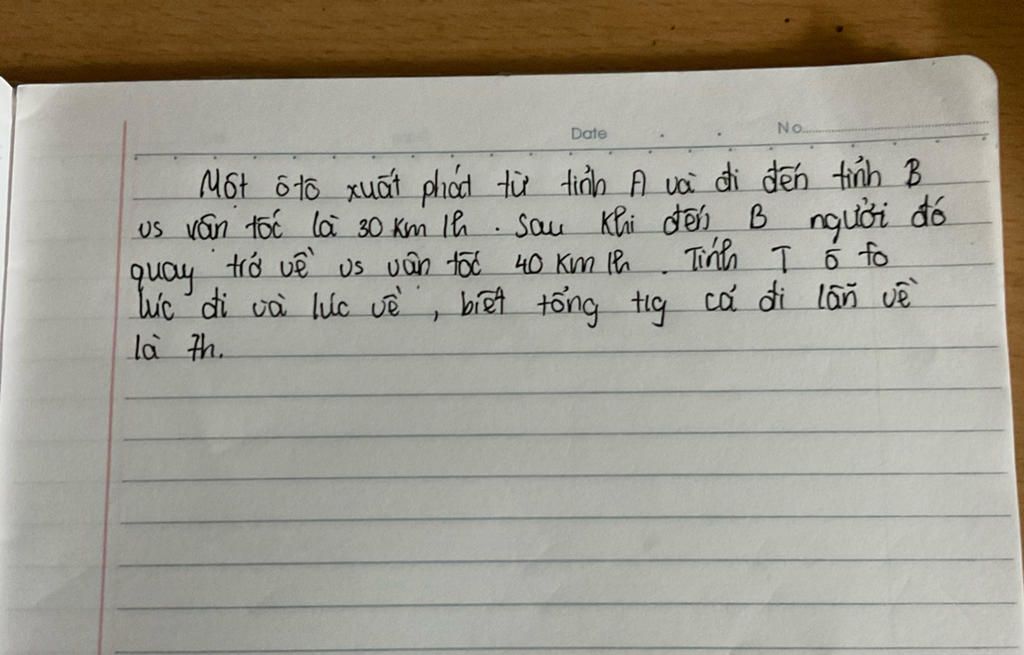 Date No
Một ô tô xuất phát từ tỉnh A và đi đến tỉnh B
vs vận tốc là 30 km/h. Sau khi đến B người đó
quay trở về vs vận tốc 40 km/h. Tính T ô tô
lúc đi và lúc về, biết tổng t/g cả đi lẫn về
là 7h.